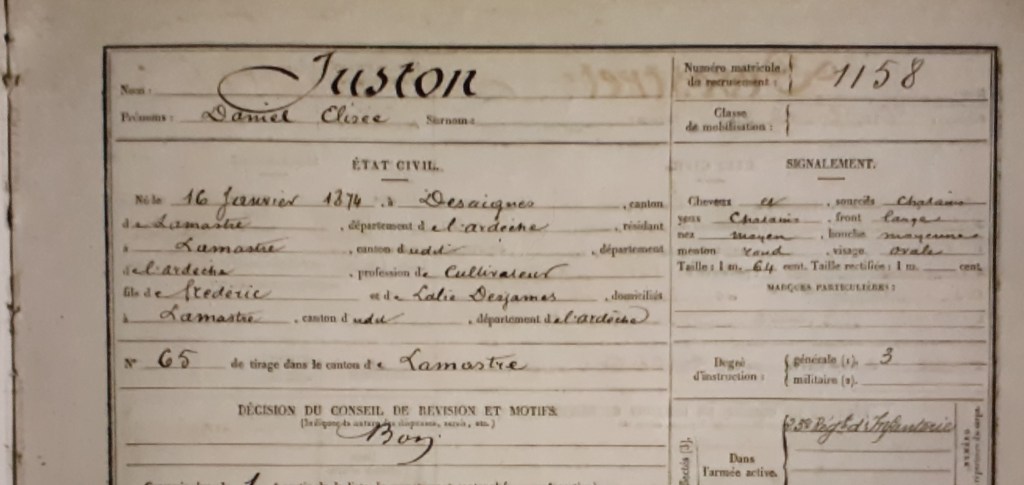 Nom : Juston
Prénoms : Daniel Elisée Surnom :
Numéro matricule du recrutement : 1158
Classe de mobilisation :
ÉTAT CIVIL.
Né le 16 Janvier 1874, à Desaignes, canton
de Lamastre, département de l'ardèche, résidant
à Lamastre, canton dudit, département
de l'ardeche, profession de Cultivateur
fils de Frederic et de Lalie Desjames, domiciliés
à Lamastre, canton dudit, département de l'ardèche
N° 65 de tirage dans le canton de Lamastre
DÉCISION DU CONSEIL DE REVISION ET MOTIFS.
Bon
SIGNALEMENT.
Cheveux et, sourcils Chatains
yeux Chatains, front large
nez moyen, bouche moyenne
menton rond, visage ovale
Taille : 1 m. 64 cent. Taille rectifiée : 1 m. cent.
MARQUES PARTICULIÈRES :
Degré d'instruction :
générale (1). 3
militaire (2).
Dans l'armée active.
Régt d'Infanterie